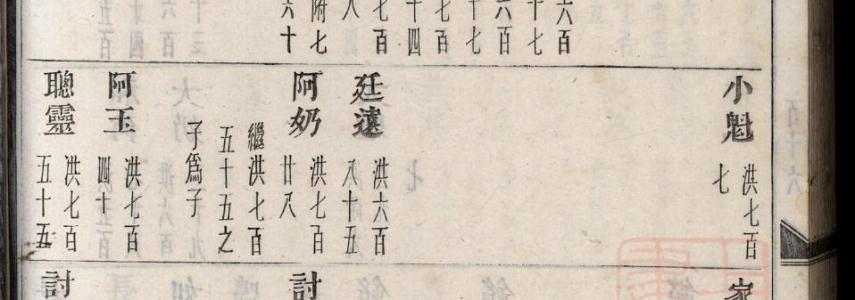 六百
十七
六百
十七
七百
十四
七百
附七
六十
小魁
洪七百
七
廷遠
洪六百
八十五
阿奶
洪七百
廿八
繼洪七百
五十五之
子爲子
阿玉
洪七百
四十五
聰靈
洪七百
五十五
家
討
討